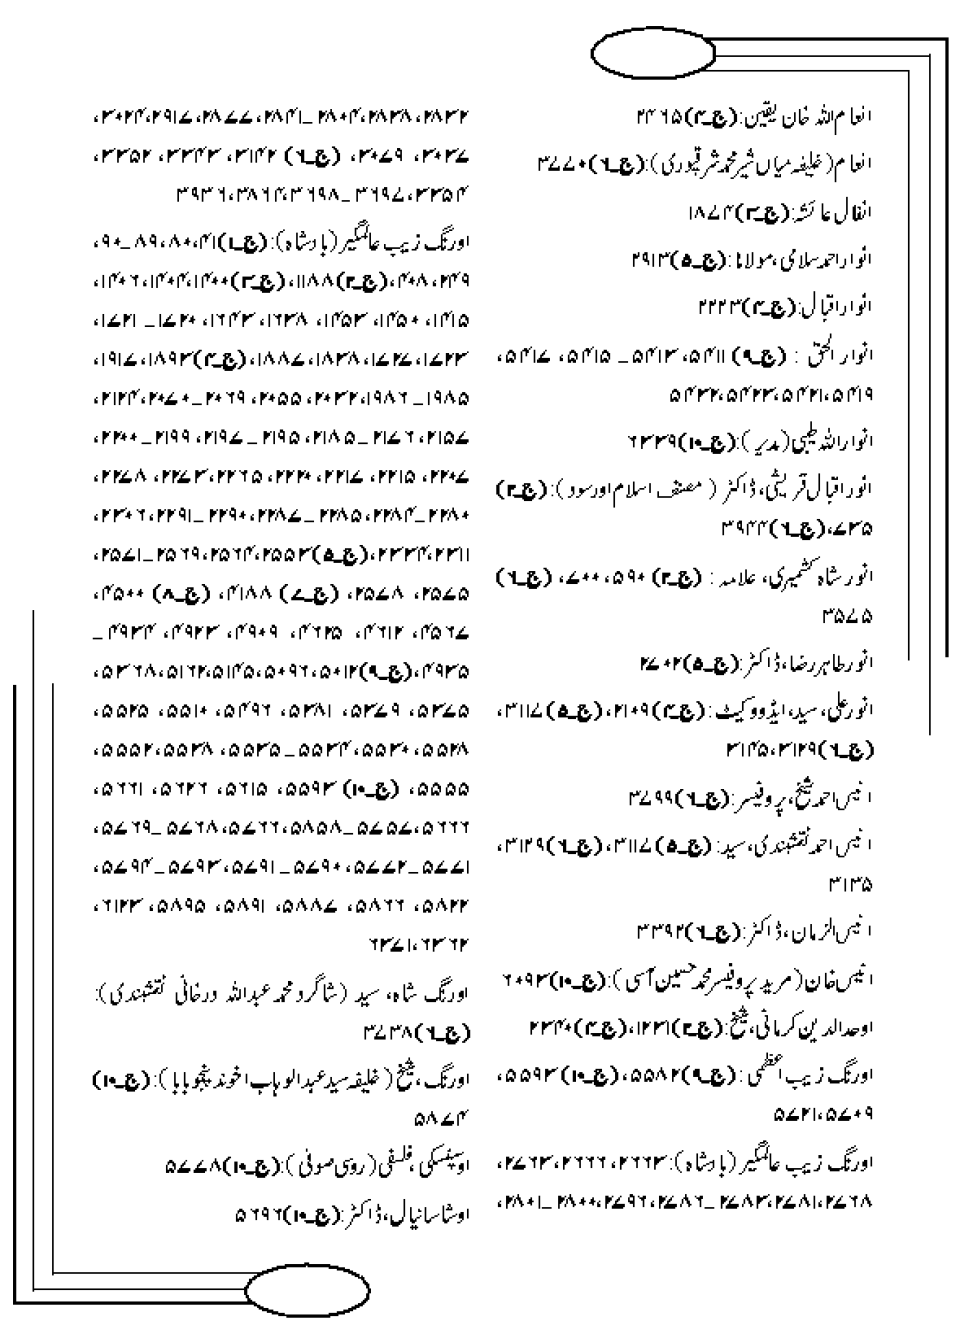 انعام اللہ خان یقین:(ج۔۴)۲۴۶۵
انعام(خلیفہ میاں شیر محمد شرقپوری):(ج۔۶)۳۷۷۰
انفال عائشہ:(ج۔۳)۱۸۷۴
انوار احمد سلامی،مولانا:(ج۔۵)۲۹۱۳
انوار اقبال:(ج۔۴)۲۲۲۳
انوار الحق : (ج۔۹) ۵۴۱۱، ۵۴۱۳۔ ۵۴۱۵، ۵۴۱۷،
۵۴۱۹،۵۴۲۱،۵۴۲۳،۵۴۳۲
انوار اللہ طیبی(مدیر):(ج۔۱۰)۶۳۳۹
انور اقبال قریشی،ڈاکٹر ( مصنف اسلام اور سود ):(ج۔۲)
۷۳۵،(ج۔۶)۳۹۴۴
انور شاہ کشمیری، علامہ : (ج۔۲) ۵۹۰، ۷۰۰، (ج۔۶)
۳۵۷۵
انور طاہر رضا،ڈاکٹر:(ج۔۵)۲۷۰۲
انور علی، سید،ایڈووکیٹ:(ج۔۴)۲۱۰۹،(ج۔۵)۳۱۱۷،
(ج۔۶)۳۱۲۹،۳۱۴۵
انیس احمد شیخ، پروفیسر:(ج۔۶)۳۷۹۹
انیس احمد نقشبندی،سید: (ج۔۵)۳۱۱۷،(ج۔۶)۳۱۲۹،
۳۱۳۵
انیس الزمان،ڈاکٹر:(ج۔۶)۳۳۹۲
انیس خان(مرید پروفیسر محمد حسین آسی):(ج۔۱۰)۶۰۹۳
اوحد الدین کرمانی،شیخ:(ج۔۳)۱۲۳۱،(ج۔۴)۲۳۴۰
اورنگ زیب اعظمی:(ج۔۹)۵۵۸۲،(ج۔۱۰)۵۵۹۳،
۵۷۰۹،۵۷۲۱
اورنگ زیب عالمگیر (بادشاہ):۲۶۶۳، ۲۶۶۶، ۲۷۶۳،
۲۷۶۸،۲۷۸۱،۲۷۸۳۔ ۲۷۸۶،۲۷۹۶،۲۸۰۰۔ ۲۸۰۱،
۲۸۳۲،۲۸۳۸،۲۸۰۴۔ ۲۸۴۱، ۲۸۷۷، ۲۹۱۷،۳۰۲۴،
۳۰۳۷، ۳۰۷۹، (ج۔۶) ۳۱۴۲، ۳۳۴۳، ۳۳۵۲،
۳۳۵۴،۳۶۹۷۔ ۳۶۹۸،۳۸۶۴،۳۹۳۶
اورنگ زیب عالمگیر(بادشاہ):(ج۔۱)۴۱،۸۰،۸۹۔۹۰،
۲۴۹،۴۰۸،(ج۔۲)۱۱۸۸،(ج۔۳)۱۴۰۰،۱۴۰۴،۱۴۰۶،
۱۴۱۵، ۱۴۵۰، ۱۴۵۳، ۱۶۳۸، ۱۶۴۳، ۱۶۷۰۔ ۱۶۷۱،
۱۶۷۳،۱۷۷۶،۱۸۳۸، ۱۸۸۷،(ج۔۴)۱۸۹۳، ۱۹۱۷،
۱۹۸۵۔ ۱۹۸۶،۲۰۳۲، ۲۰۵۵، ۲۰۶۹۔۲۰۷۰،۲۱۲۴،
۲۱۵۷، ۲۱۷۶۔ ۲۱۸۵، ۲۱۹۵۔ ۲۱۹۷، ۲۱۹۹۔ ۲۲۰۰،
۲۲۰۷، ۲۲۱۵، ۲۲۱۷، ۲۲۲۰، ۲۲۶۵، ۲۲۷۳، ۲۲۷۸،
۲۲۸۰۔۲۲۸۴، ۲۲۸۵۔ ۲۲۸۷، ۲۲۹۰۔ ۲۲۹۱،۲۳۰۶،
۲۳۱۱،۲۳۳۴،(ج۔۵)۲۵۵۳،۲۵۶۴،۲۵۶۹۔۲۵۷۱،
۲۵۷۵، ۲۵۷۸، (ج۔۷) ۴۱۸۸، (ج۔۸) ۴۵۰۰،
۴۵۶۷، ۴۶۱۲، ۴۶۲۵، ۴۹۰۹، ۴۹۲۳، ۴۹۳۴۔
۴۹۳۵،(ج۔۹)۵۰۱۲،۵۰۹۶،۵۱۴۵،۵۱۶۲،۵۳۶۸،
۵۳۷۵، ۵۳۷۹، ۵۳۸۱، ۵۴۹۶، ۵۵۱۰، ۵۵۲۵،
۵۵۲۸، ۵۵۳۰،۵۵۳۴۔ ۵۵۳۵، ۵۵۳۸، ۵۵۵۲،
۵۵۵۵، (ج۔۱۰) ۵۵۹۳، ۵۶۱۵، ۵۶۲۶، ۵۶۶۱،
۵۶۶۶،۵۷۵۷۔۵۸۵۸،۵۷۶۶،۵۷۶۸۔ ۵۷۶۹،
۵۷۷۱۔ ۵۷۷۲، ۵۷۹۰۔ ۵۷۹۱، ۵۷۹۳۔ ۵۷۹۴،
۵۸۲۲، ۵۸۶۶، ۵۸۸۷، ۵۸۹۱، ۵۸۹۵، ۶۱۲۳،
۶۳۶۲،۶۳۷۱
اورنگ شاہ، سید (شاگرد محمد عبداللہ درخانی نقشبندی):
(ج۔۶)۳۷۳۸
اورنگ، شیخ( خلیفہ سید عبدالوہاب اخوند پنجو بابا ):(ج۔۱۰)
۵۸۷۴
اوسپنسکی،فلسفی(روسی صوفی):(ج۔۱۰)۵۷۷۸
اوشا سانیال،ڈاکٹر:(ج۔۱۰)۵۶۹۶